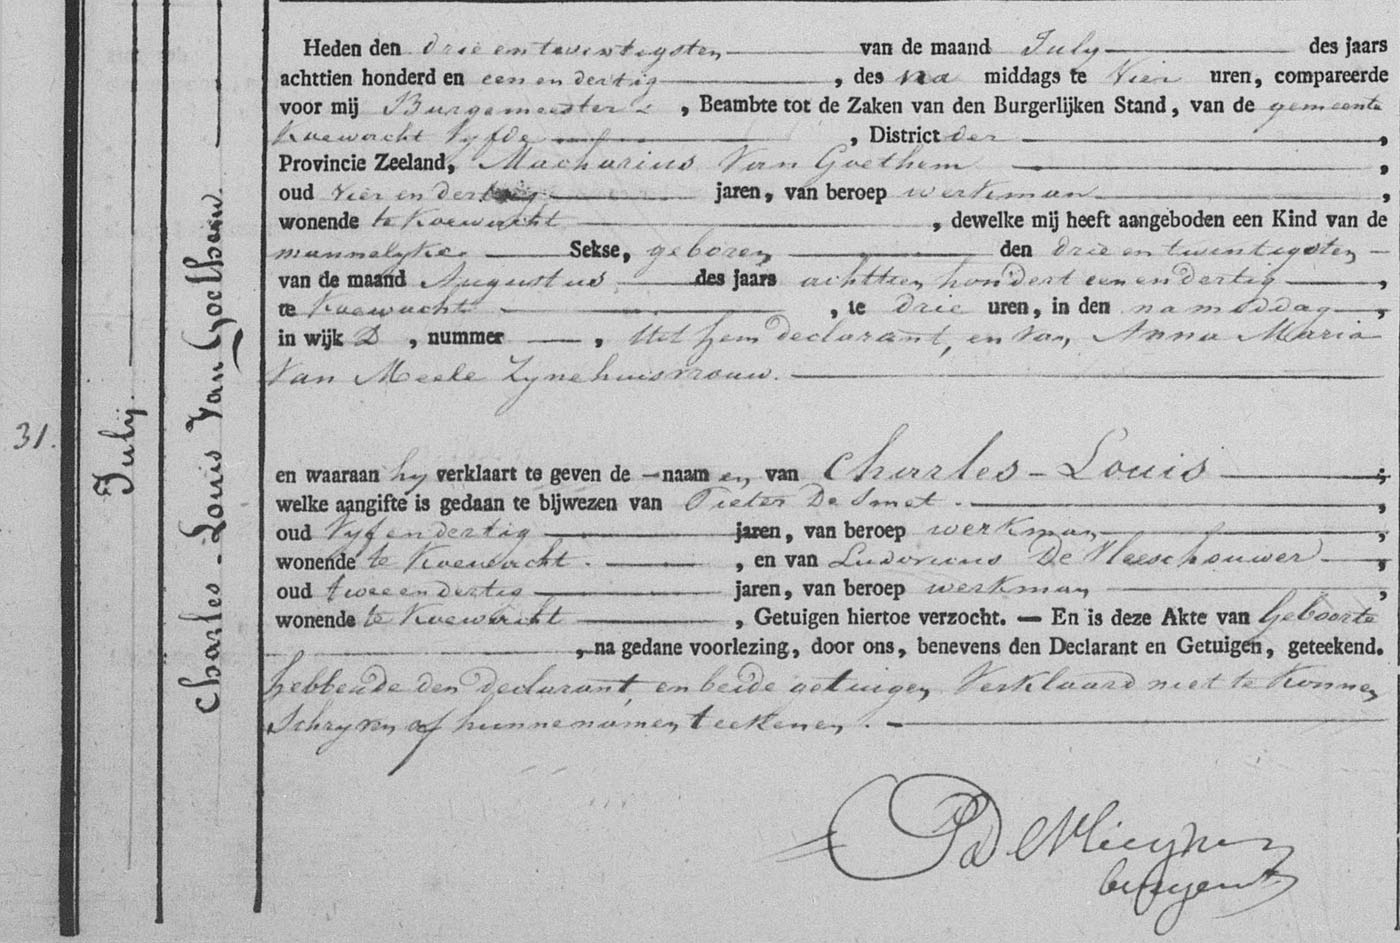 31.
July.
Charles-Louis Van Goethem.
Heden den drie en twintigsten van de maand July des jaars
achttien honderd en een en dertig, des na middags te Vier uren, compareerde
voor mij Burgemeester, Beambte tot de Zaken van den Burgerlijken Stand, van de gemeente
Koewacht Vyfde, District der,
Provincie Zeeland, Macharius Van Goethem,
oud vier en dertig jaren, van beroep werkman,
wonende te Koewacht, dewelke mij heeft aangeboden een Kind van de
mannelyke Sekse, geboren den drie en twintigsten
van de maand Augustus des jaars achttien hondert een en dertig,
te Koewacht, te drie uren, in den namiddag,
in wijk D, nummer —, Uit hem declarant, en van Anna Maria
Van Meele Zyne huisvrouw.
en waaraan hy verklaart te geven de — naam en van Charles-Louis;
welke aangifte is gedaan te bijwezen van Pieter De Smet.,
oud Vyf en dertig jaren, van beroep werkman,
wonende te Koewacht., en van Ludovicus De Vleeschouwer,
oud twee en dertig jaren, van beroep werkman,
wonende te Koewacht, Getuigen hiertoe verzocht. — En is deze Akte van Geboorte
, na gedane voorlezing, door ons, benevens den Declarant en Getuigen, geteekend.
hebbende den declarant, en beide getuigen Verklaard niet te Konnen
Schryven of hunne namen teekenen. —